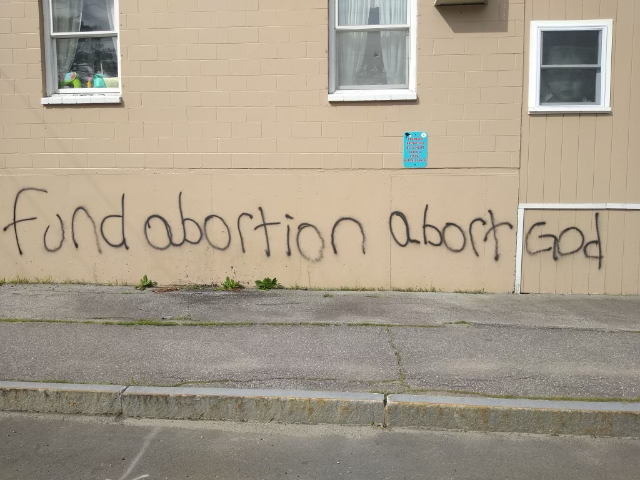 fund abortion abort God